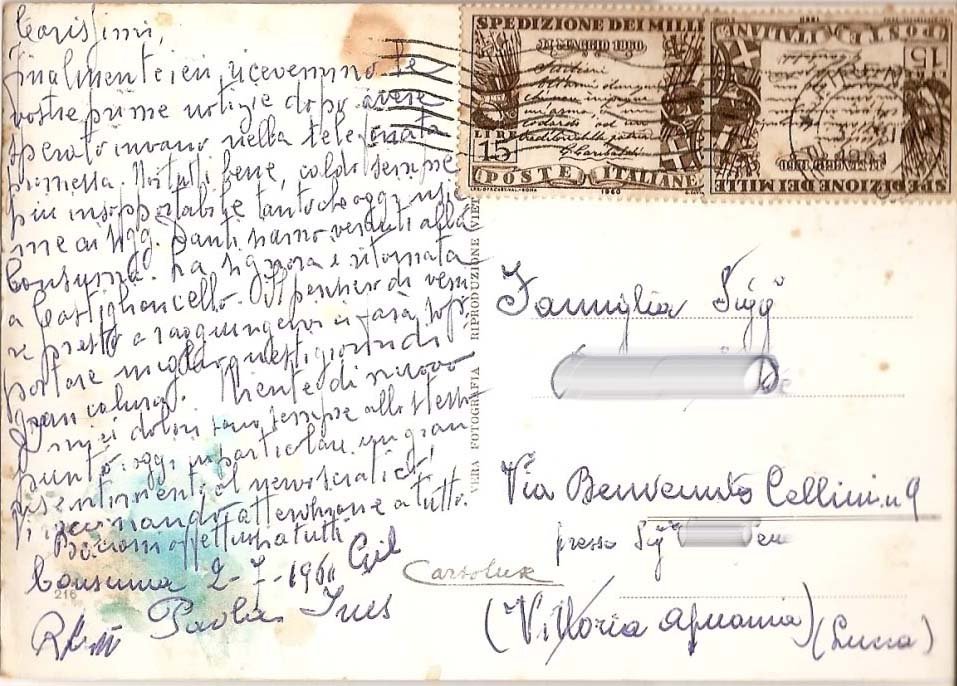 Carissimi,
finalmente ieri ricevemmo le
vostre prime notizie dopo avere
sperato invano nella telefonata
promessa. Noi tutti bene, caldo sempre
più insopportabile tanto che oggi insie
me ai Sigg. Danti siamo venuti alla
Consuma. La signora è ritornata
a Castiglioncello. Il pensiero di veni
re presto a raggiungervi ci farà sop
portare meglio questi giorni di
gran calura. Niente di nuovo
I miei dolori sono sempre allo stesso
punto: oggi in particolare un gran
risentimento al nervo sciatico,
attenzione a tutto.
Bacioni affettuosi a tutti
Gil
Consuma 2-7-1960
Paola Ines
216
VERA FOTOGRAFIA RIPRODUZIONE VIET
SPEDIZIONE DEI MILLE
MAGGIO 1860
G. Garibaldi
LIRE
15
POSTE ITALIANE
1960
SPEDIZIONE DEI MILLE
MAGGIO 1860
15
POSTE ITALIANE
Famiglia Sigg
Via Benvenuto Cellini n 9
presso Sig
Cartolux
(Vittoria Apuania) (Lucca)